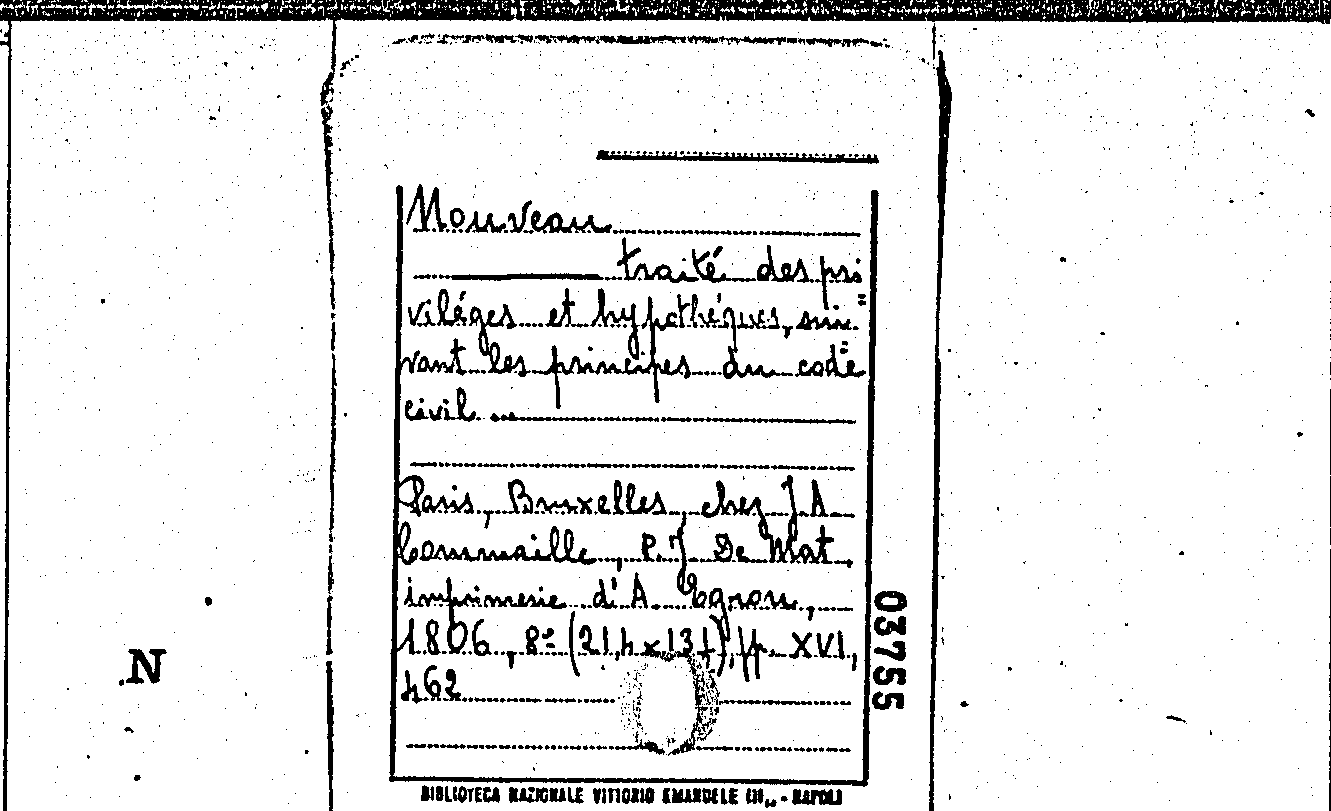 Nouveau
traité des pri=
viléges et hypothéques, sui=
vant les principes du code
civil ...
Paris, Bruxelles, chez J A
Commaille, P. J De Mat,
imprimerie d'A. Egron,
1806, 8º (21,4 x 13), p. XVI,
462
03755
N
BIBLIOTECA NAZIONALE VITTORIO EMANUELE III - NAPOLI